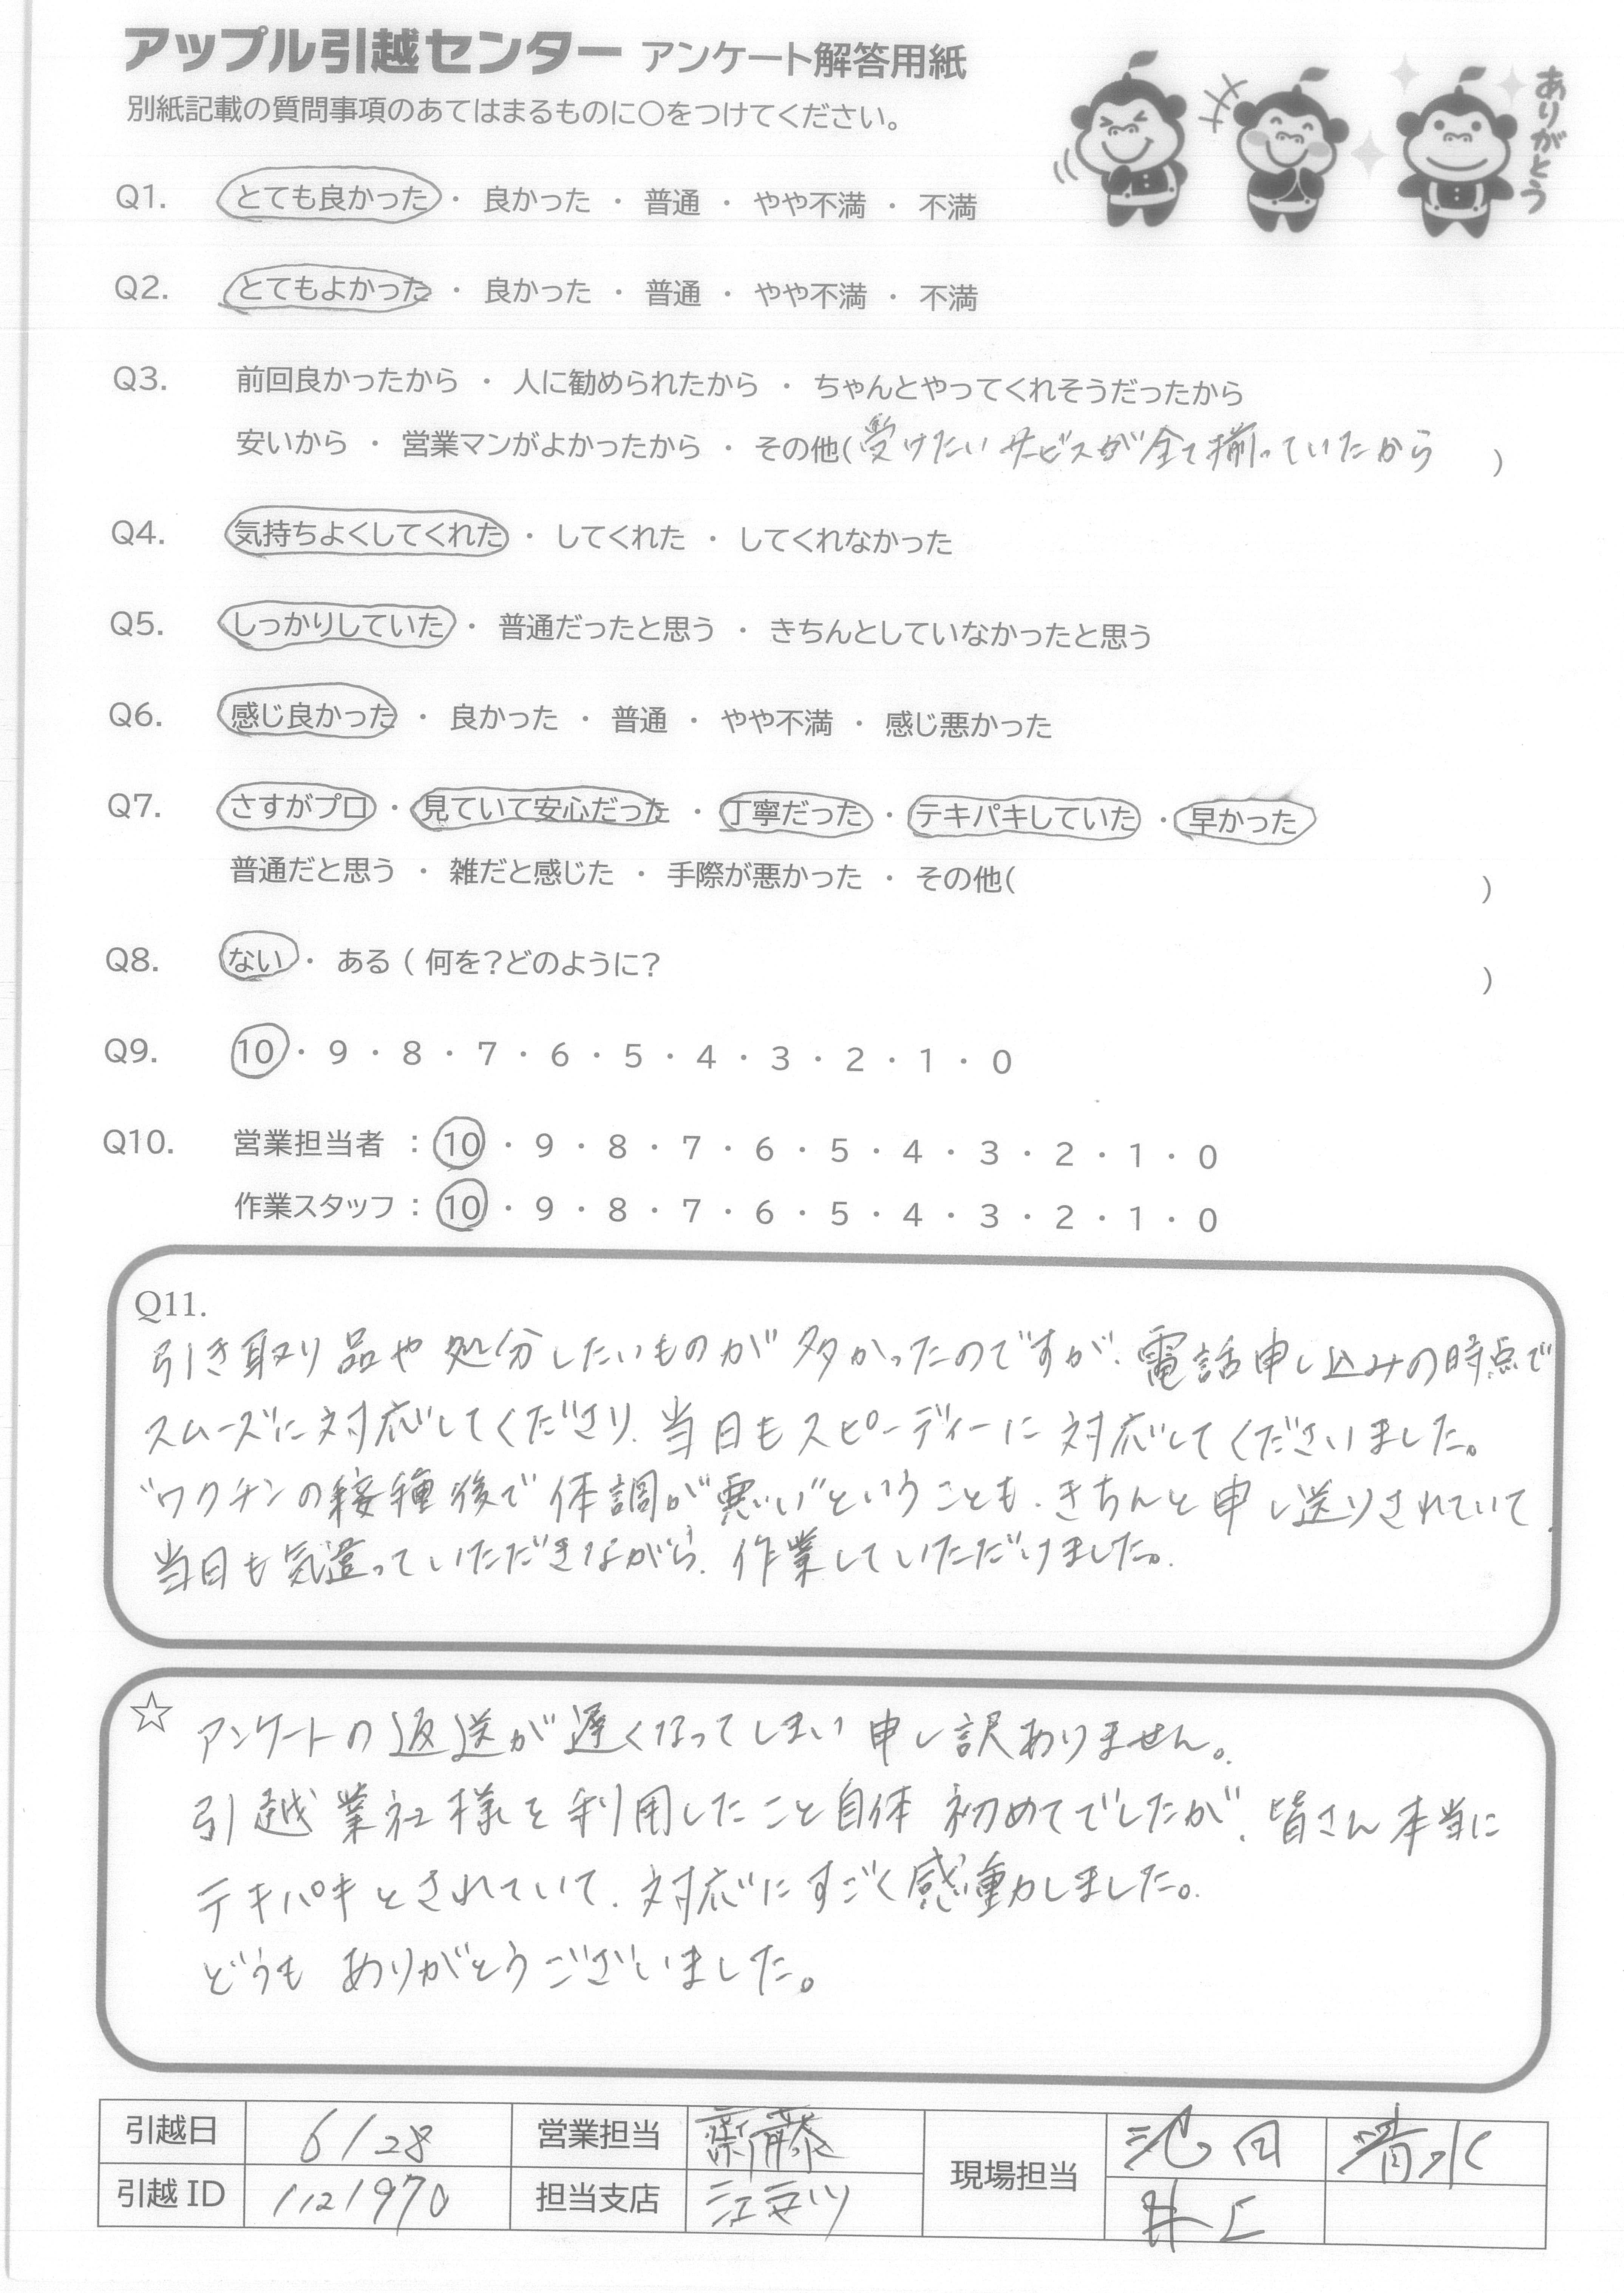 アップル引越センター アンケート解答用紙
別紙記載の質問事項のあてはまるものに○をつけてください。
ありがとう
Q1. とても良かった ・ 良かった ・ 普通 ・ やや不満 ・ 不満
Q2. とてもよかった ・ 良かった ・ 普通 ・ やや不満 ・ 不満
Q3. 前回良かったから ・ 人に勧められたから ・ ちゃんとやってくれそうだったから
安いから ・ 営業マンがよかったから ・ その他(受けたいサービスが全て揃っていたから )
Q4. 気持ちよくしてくれた ・ してくれた ・ してくれなかった
Q5. しっかりしていた ・ 普通だったと思う ・ きちんとしていなかったと思う
Q6. 感じ良かった ・ 良かった ・ 普通 ・ やや不満 ・ 感じ悪かった
Q7. さすがプロ ・ 見ていて安心だった ・ 丁寧だった ・ テキパキしていた ・ 早かった
普通だと思う ・ 雑だと感じた ・ 手際が悪かった ・ その他( )
Q8. ない ・ ある ( 何を?どのように? )
Q9. 10 ・ 9 ・ 8 ・ 7 ・ 6 ・ 5 ・ 4 ・ 3 ・ 2 ・ 1 ・ 0
Q10. 営業担当者 : 10 ・ 9 ・ 8 ・ 7 ・ 6 ・ 5 ・ 4 ・ 3 ・ 2 ・ 1 ・ 0
作業スタッフ : 10 ・ 9 ・ 8 ・ 7 ・ 6 ・ 5 ・ 4 ・ 3 ・ 2 ・ 1 ・ 0
Q11.
引き取り品や処分したいものが多かったのですが、電話申し込みの時点で
スムーズに対応してくださり、当日もスピーディーに対応してくださいました。
"ワクチンの接種後で体調が悪い"ということも、きちんと申し送りされていて、
当日も気遣っていただきながら、作業していただけました。
☆ アンケートの返送が遅くなってしまい申し訳ありません。
引越業社様を利用したこと自体初めてでしたが、皆さん本当に
テキパキとされていて、対応にすごく感動しました。
どうもありがとうございました。
引越日 6/28 営業担当 齋藤 現場担当 池田 清水
引越ID 1121970 担当支店 江戸川 井上